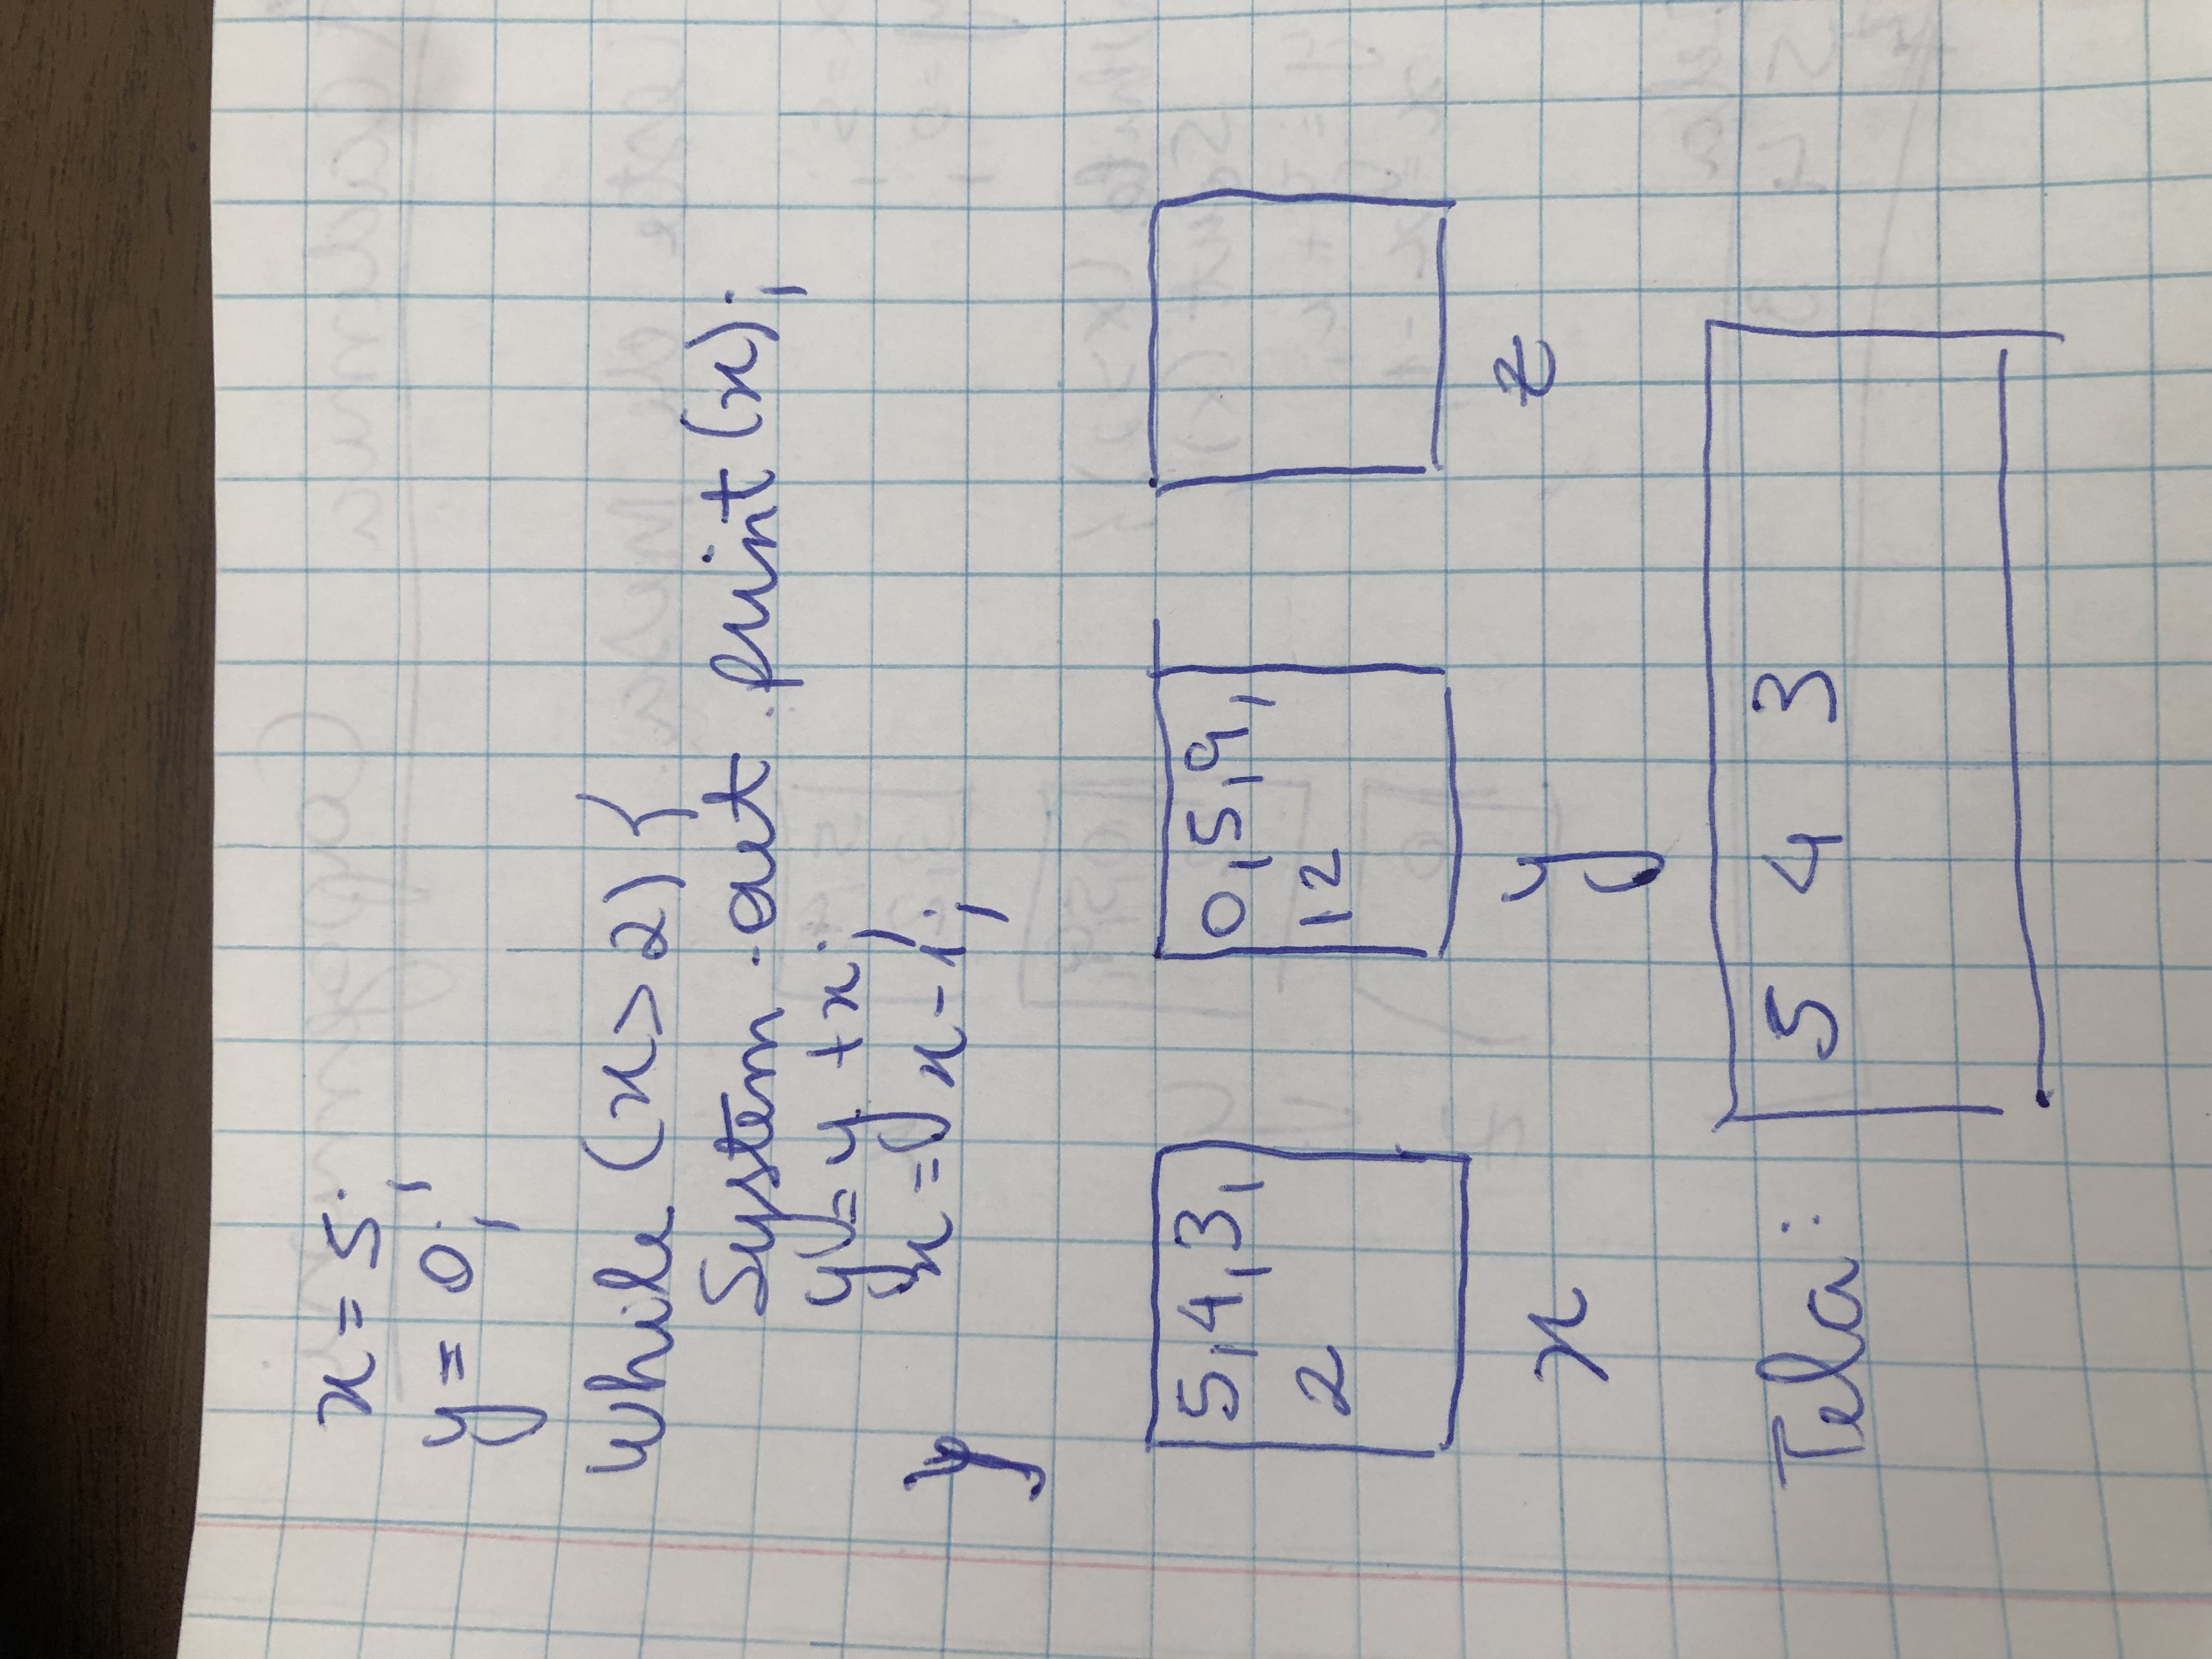 x = 5;
y = 0;
While (x > 2) {
System.out.print(x);
y = y + x;
x = x - 1;
}
5, 4, 3,
2
0, 5, 9,
12
x
y
z
Tela: 5 4 3